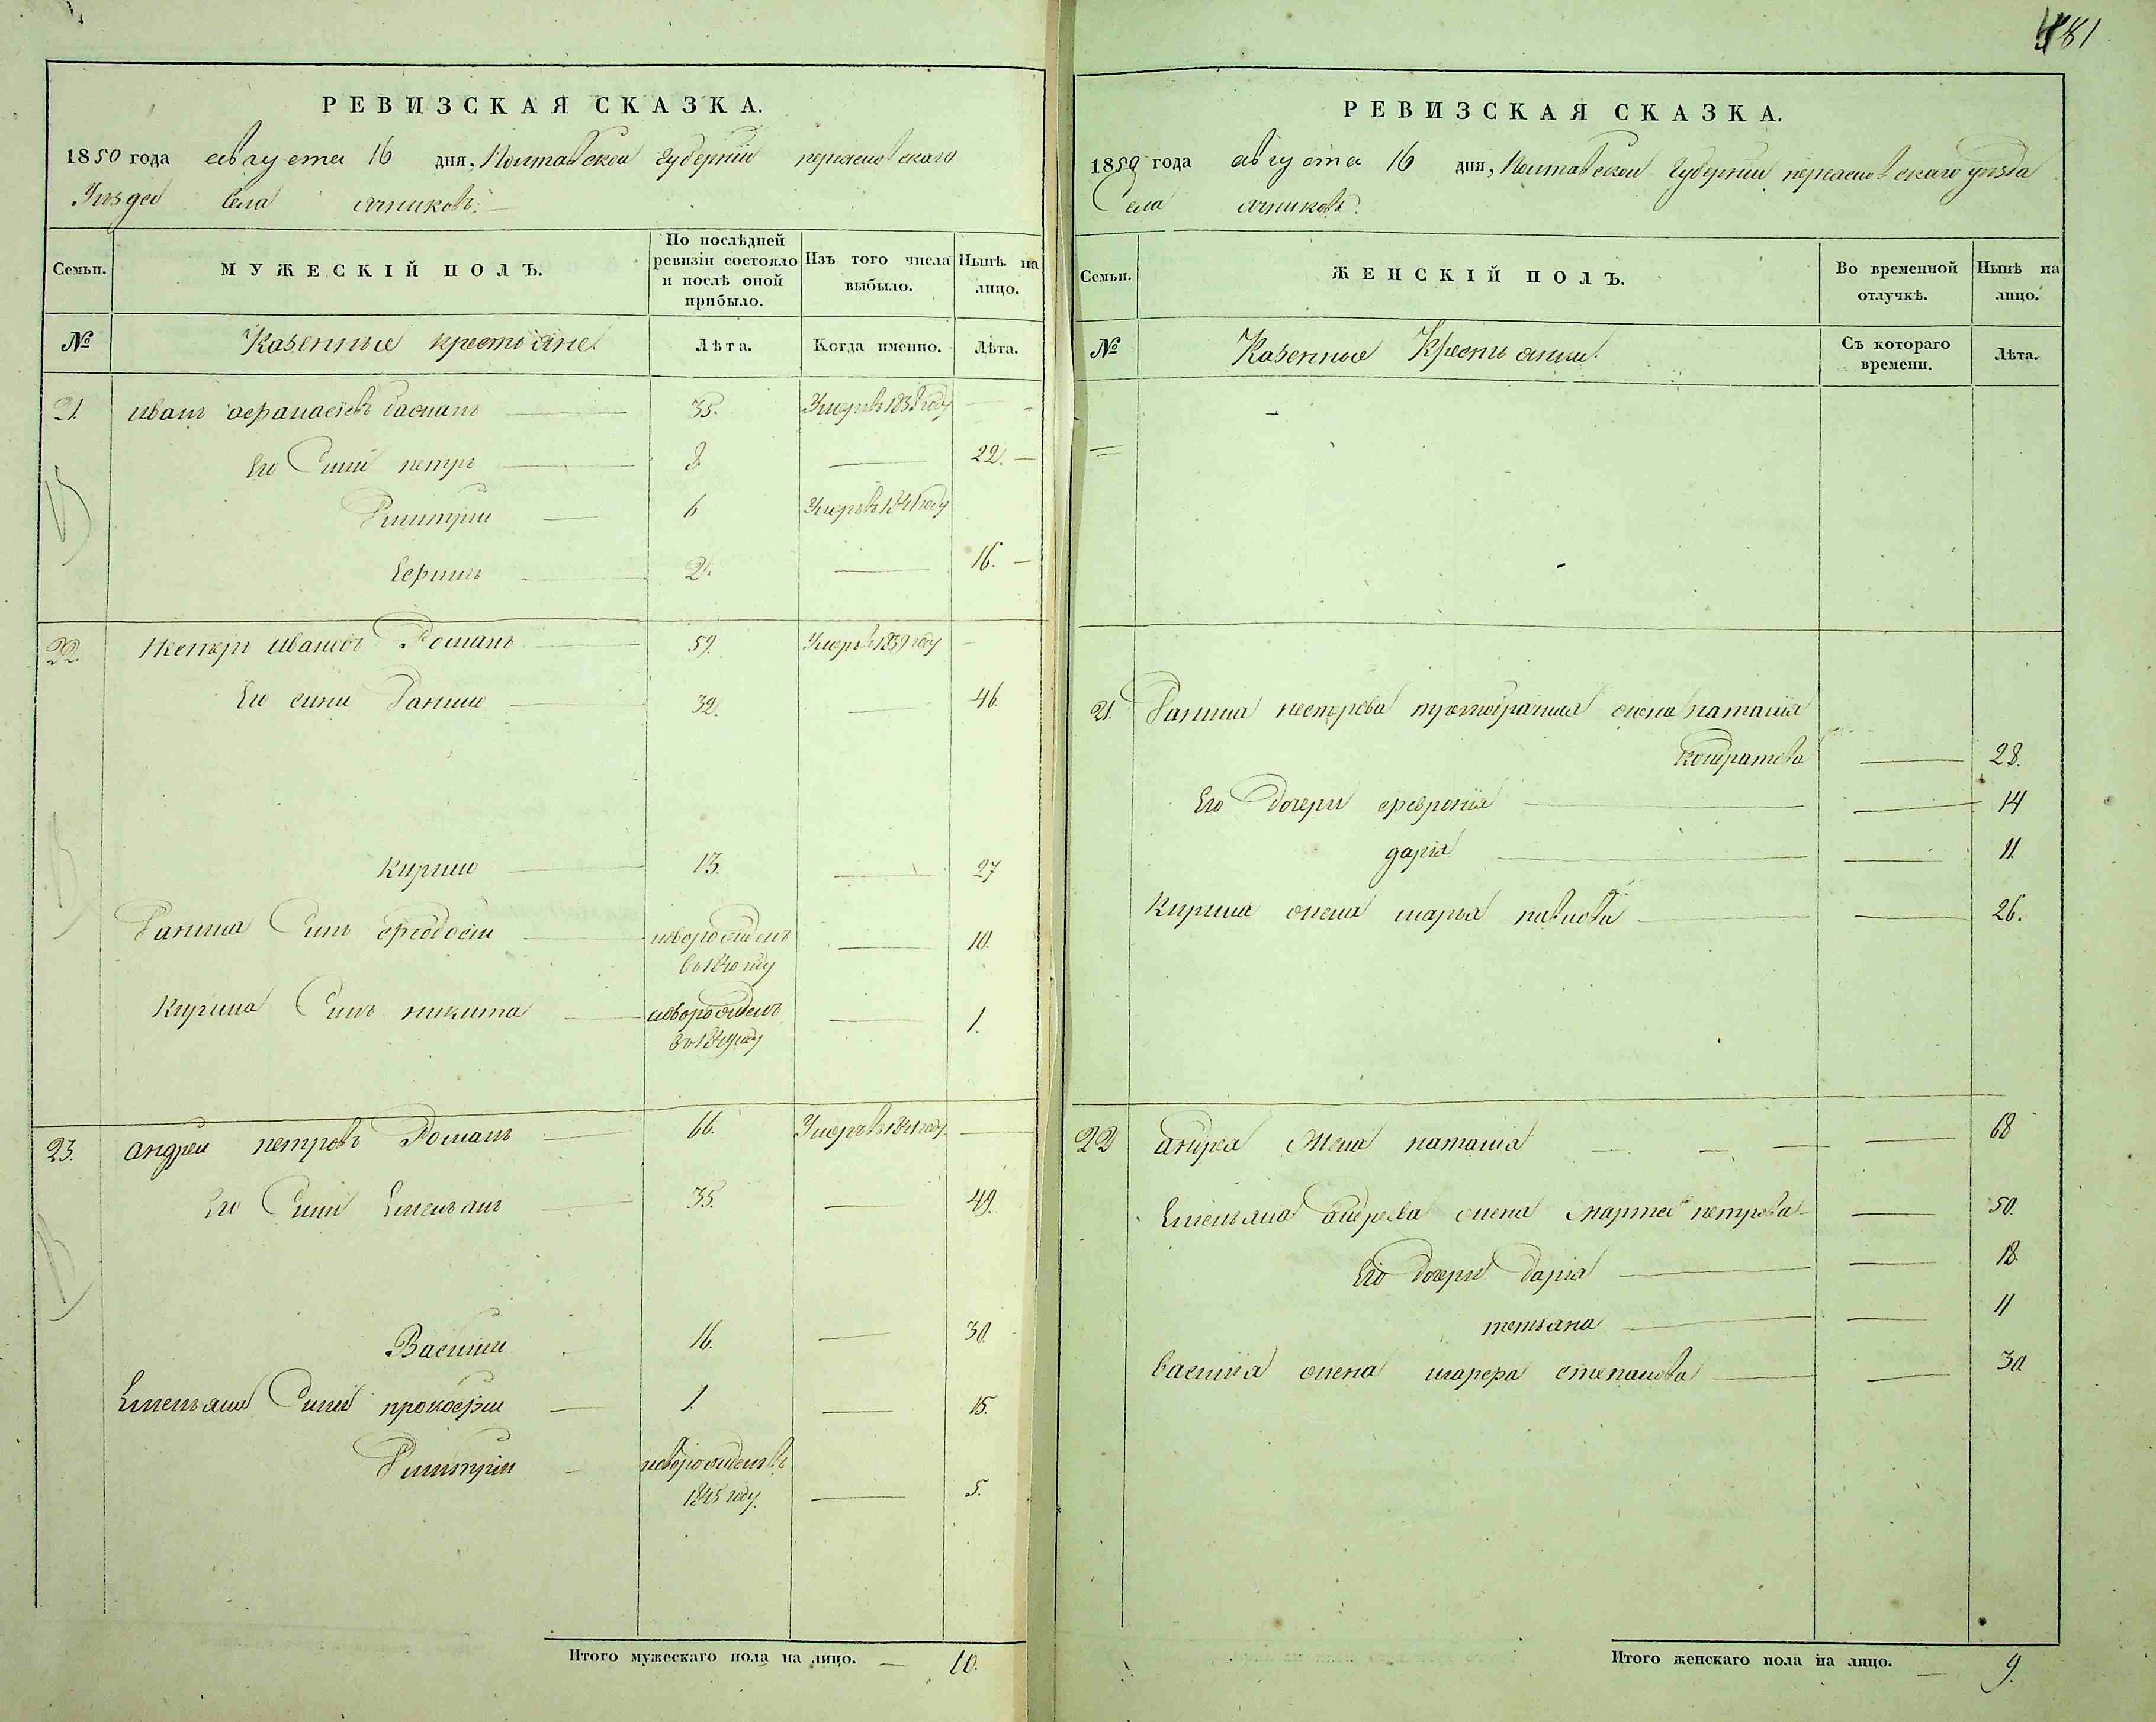 481
РЕВИЗСКАЯ СКАЗКА.
1850 года августа 16 дня, Полтавской губернии переясловскаго
Уезда села
Семьи.
МУЖЕСКІЙ ПОЛЪ.
По послѣдней ревизіи состояло и послѣ оной прибыло.
Изъ того числа выбыло.
Нынѣ на лицо.
№
Казенные крестьяне.
Лѣта.
Когда именно.
Лѣта.
21. иванъ афанасіевъ 35. Умеръ въ 1838 году —
Его Сини петръ 8 — 22. —
Дмитрій 6 Умеръ въ 1841 году
Ефимъ 2. — 16. —
22. Нестеръ ивановъ Романъ 59. Умеръ в 1839 году —
Его сини Данило 32. — 46.
Кирило 13. — 27
Данила Синъ феодосіи новорожденъ — 10.
въ 1840 году
Кирила Синъ никита новорожденъ — 1.
въ 1849 году
23. андреи петровъ Романъ 66. Умеръ въ 1841 году —
Его Сини Емельянъ 35. — 49.
Василіи 16. — 30.
Емельяна Сини прокофіи 1. — 15.
Дмитріи новорожденъ въ
1845 году. — 5.
Итого мужескаго пола на лицо. — 10.
РЕВИЗСКАЯ СКАЗКА.
1850 года августа 16 дня, Полтавской Губернии переясловскаго уезда
Села
Семьи.
ЖЕНСКІЙ ПОЛЪ.
Во временной отлучкѣ.
Нынѣ на лицо.
№
Казенные Крестьянки.
Съ котораго времени.
Лѣта.
21. Данила нестерова жена наталія
кондратова — 28.
Его дочери февронія — 14
дарія — 11.
Кирила жена марья павлова — 26.
22 андрея жена наталія — 68
Емельяна андреева жена марта петрова — 50.
Его дочери дарія — 18.
тетьяна — 11
василія жена марфа степанова — 30
Итого женскаго пола на лицо. — 9.